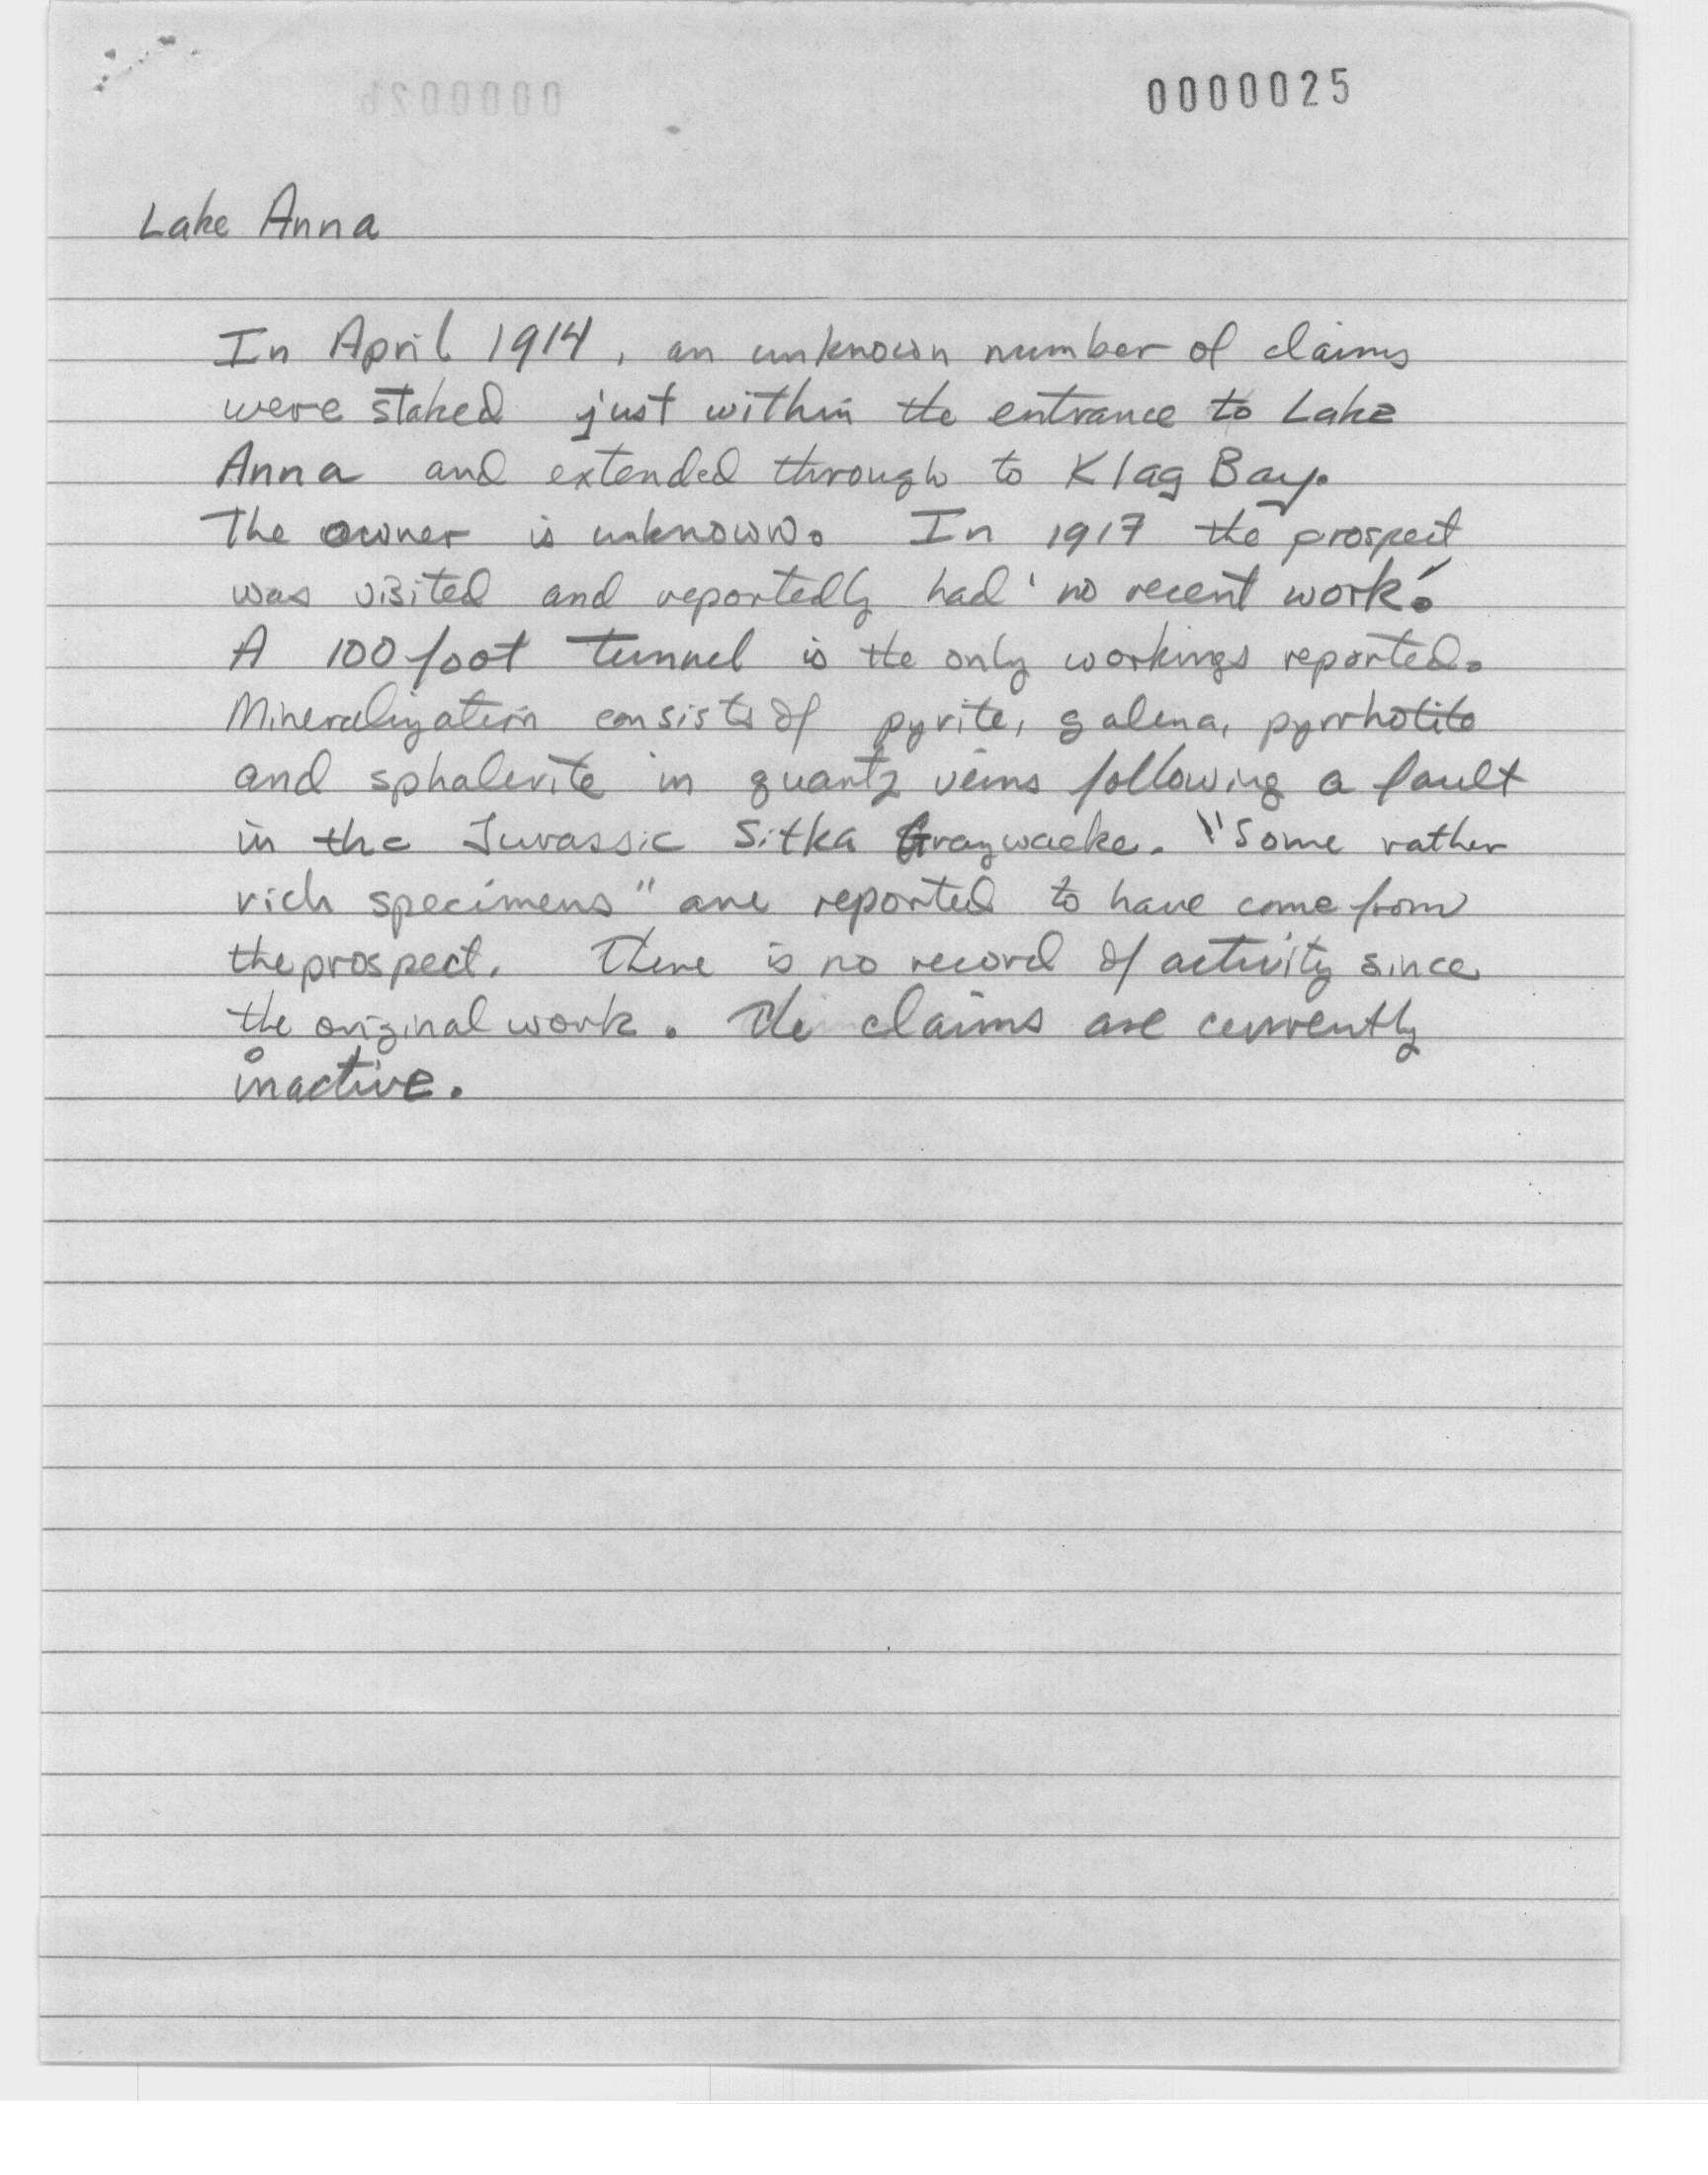 0000025
Lake Anna
In April 1914, an unknown number of claims
were staked just within the entrance to Lake
Anna and extended through to Klag Bay.
The owner is unknown. In 1917 the prospect
was visited and reportedly had 'no recent work'.
A 100 foot tunnel is the only workings reported.
Mineralization consists of pyrite, galena, pyrrhotite
and sphalerite in quartz veins following a fault
in the Jurassic Sitka Graywacke. "Some rather
rich specimens" are reported to have come from
the prospect. There is no record of activity since
the original work. The claims are currently
inactive.